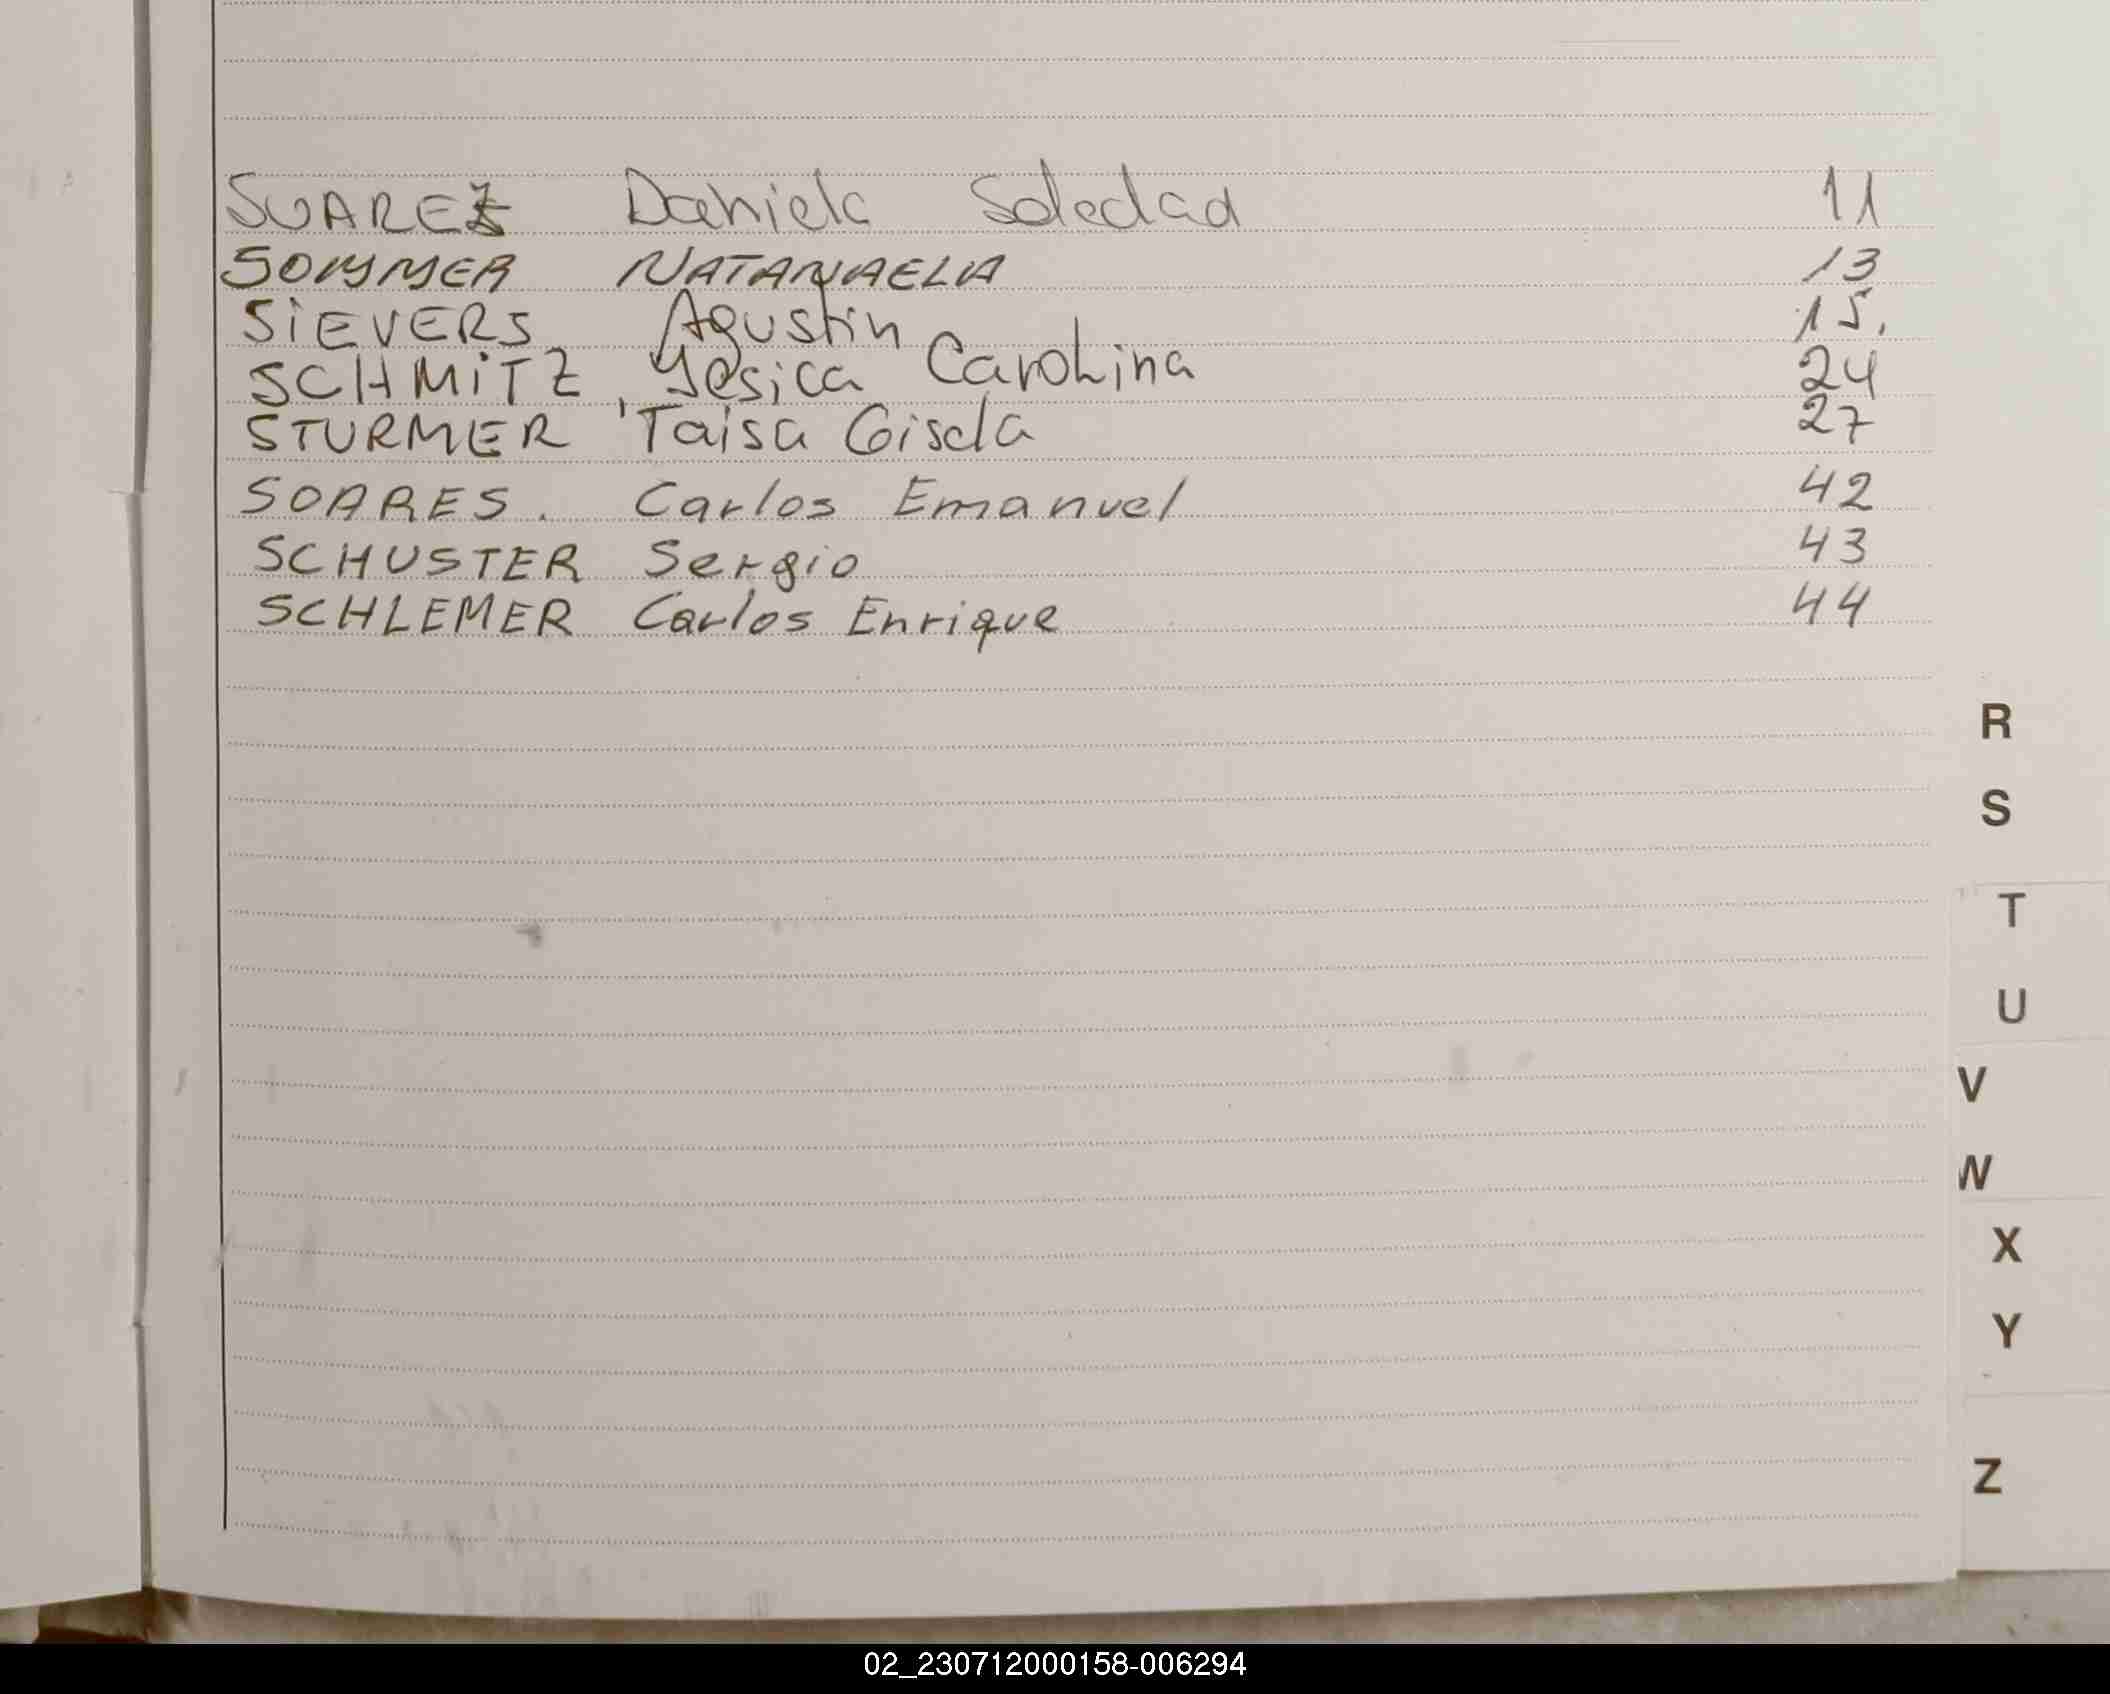 SUAREZ Daniela Soledad 11
SOMMER NATANAELA 13
SiEVERS Agustin 15.
SCHMiTZ, Yesica Carolina 24
STURMER Taisa Gisela 27
SOARES. Carlos Emanuel 42
SCHUSTER Sergio 43
SCHLEMER Carlos Enrique 44
R
S
T
U
V
W
X
Y
Z
02_230712000158-006294